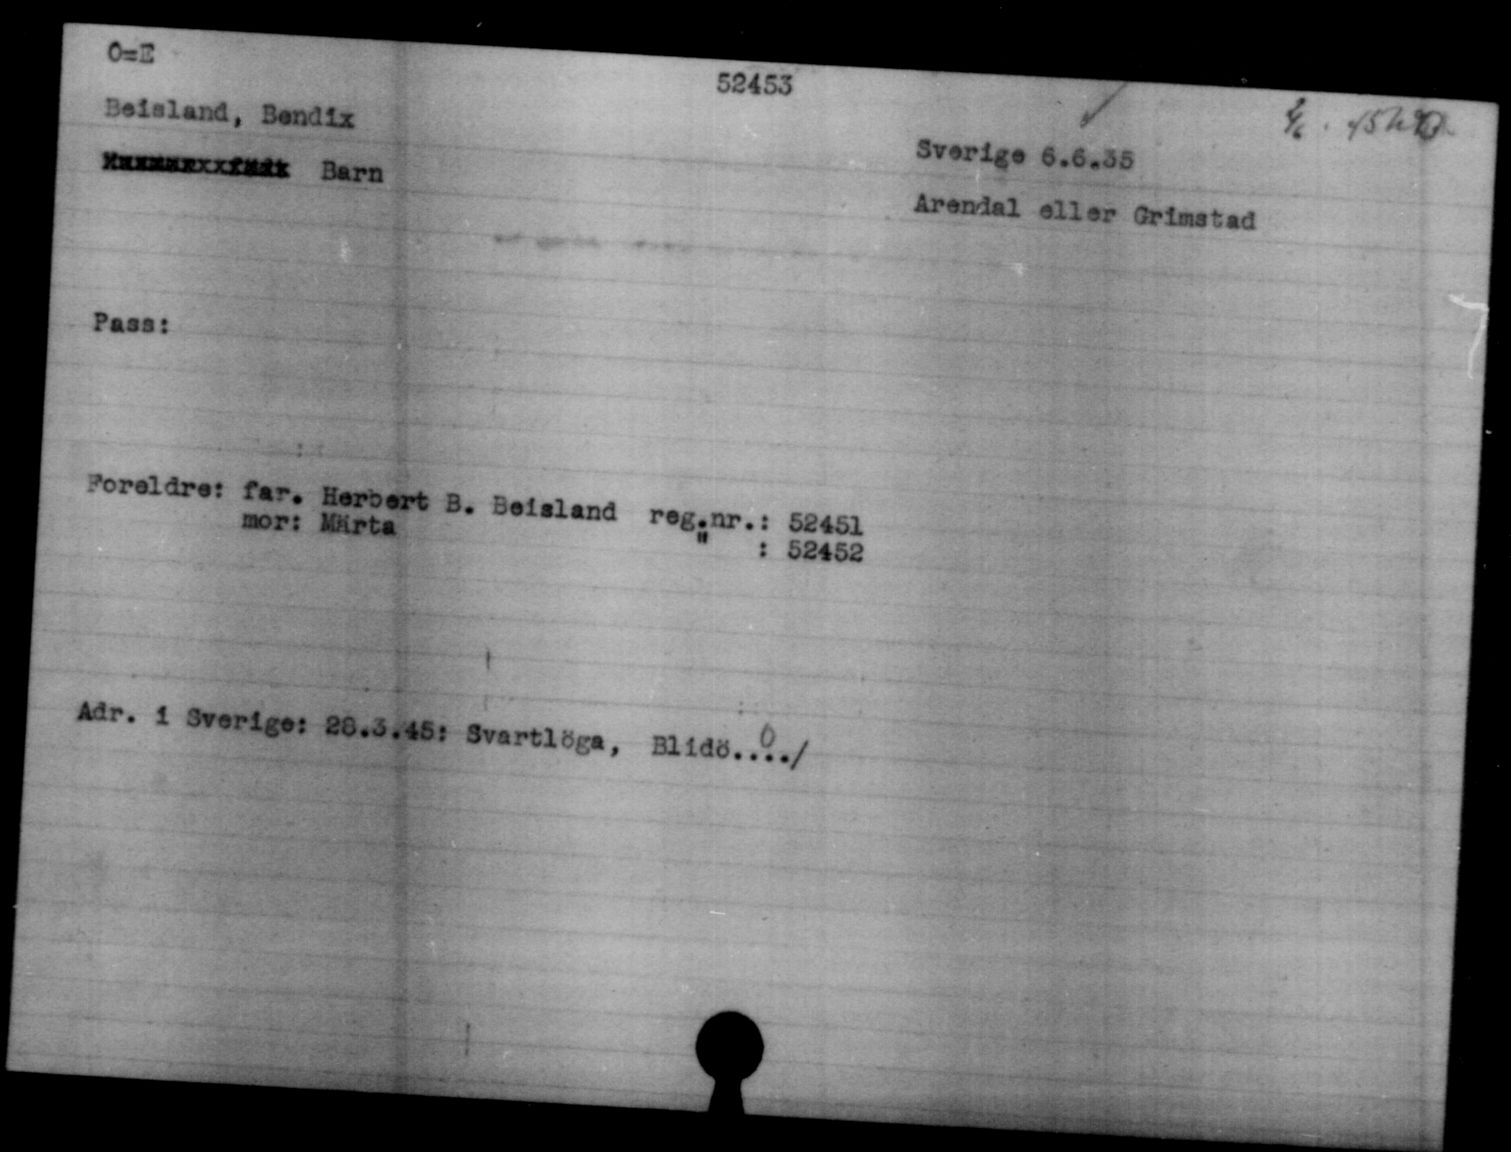 O=E
52453
Beisland, Bendix
Sverige 6.6.35
Barn
Arendal eller Grimstad
Pass:
Foreldre: far. Herbert B. Beisland reg.nr.: 52451
mor: Märta " : 52452
Adr. i Sverige: 28.3.45: Svartlöga, Blidö..../